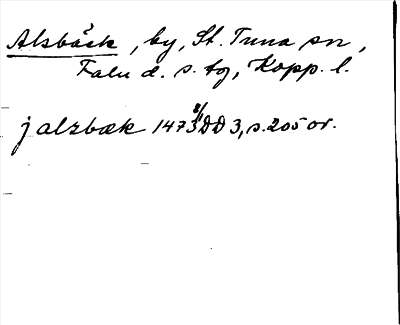 Alsbäck, by, St. Tuna sn,
Falu d. s. tg, Kopp. l.
j alzbæk 1473 8/1 DD 3, s. 205 or.